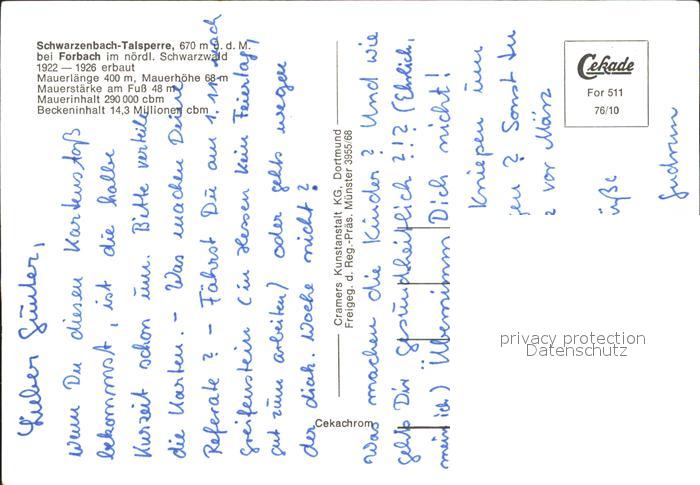 Schwarzenbach-Talsperre, 670 m ü. d. M.
bei Forbach im nördl. Schwarzwald
1922 — 1926 erbaut
Mauerlänge 400 m, Mauerhöhe 68 m
Mauerstärke am Fuß 48 m
Mauerinhalt 290 000 cbm
Beckeninhalt 14,3 Millionen cbm
Lieber Günter,
wenn Du diesen Kartenstoß
bekommst, ist die halbe
Kurzeit schon um. Bitte verteile
die Karten. – Was machen Deine
Referate? – Fährst Du am 1.11. nach
Greifenstein (in Hessen kein Feiertag,
gut zum arbeiten) oder gehts wegen
der diak. Woche nicht?
Cramers Kunstanstalt KG, Dortmund
Freigeg. d. Reg.-Präs. Münster 3955/68
Cekachrom
Was machen die Kinder? Und wie
gehts Dir gesundheitlich?!? (Ehrlich,
mein ich) Übernimm Dich nicht!
Kniepen im
gen? Sonst tu
vor März
üße
Gudrun
Cekade
For 511
76/10
privacy protection
Datenschutz